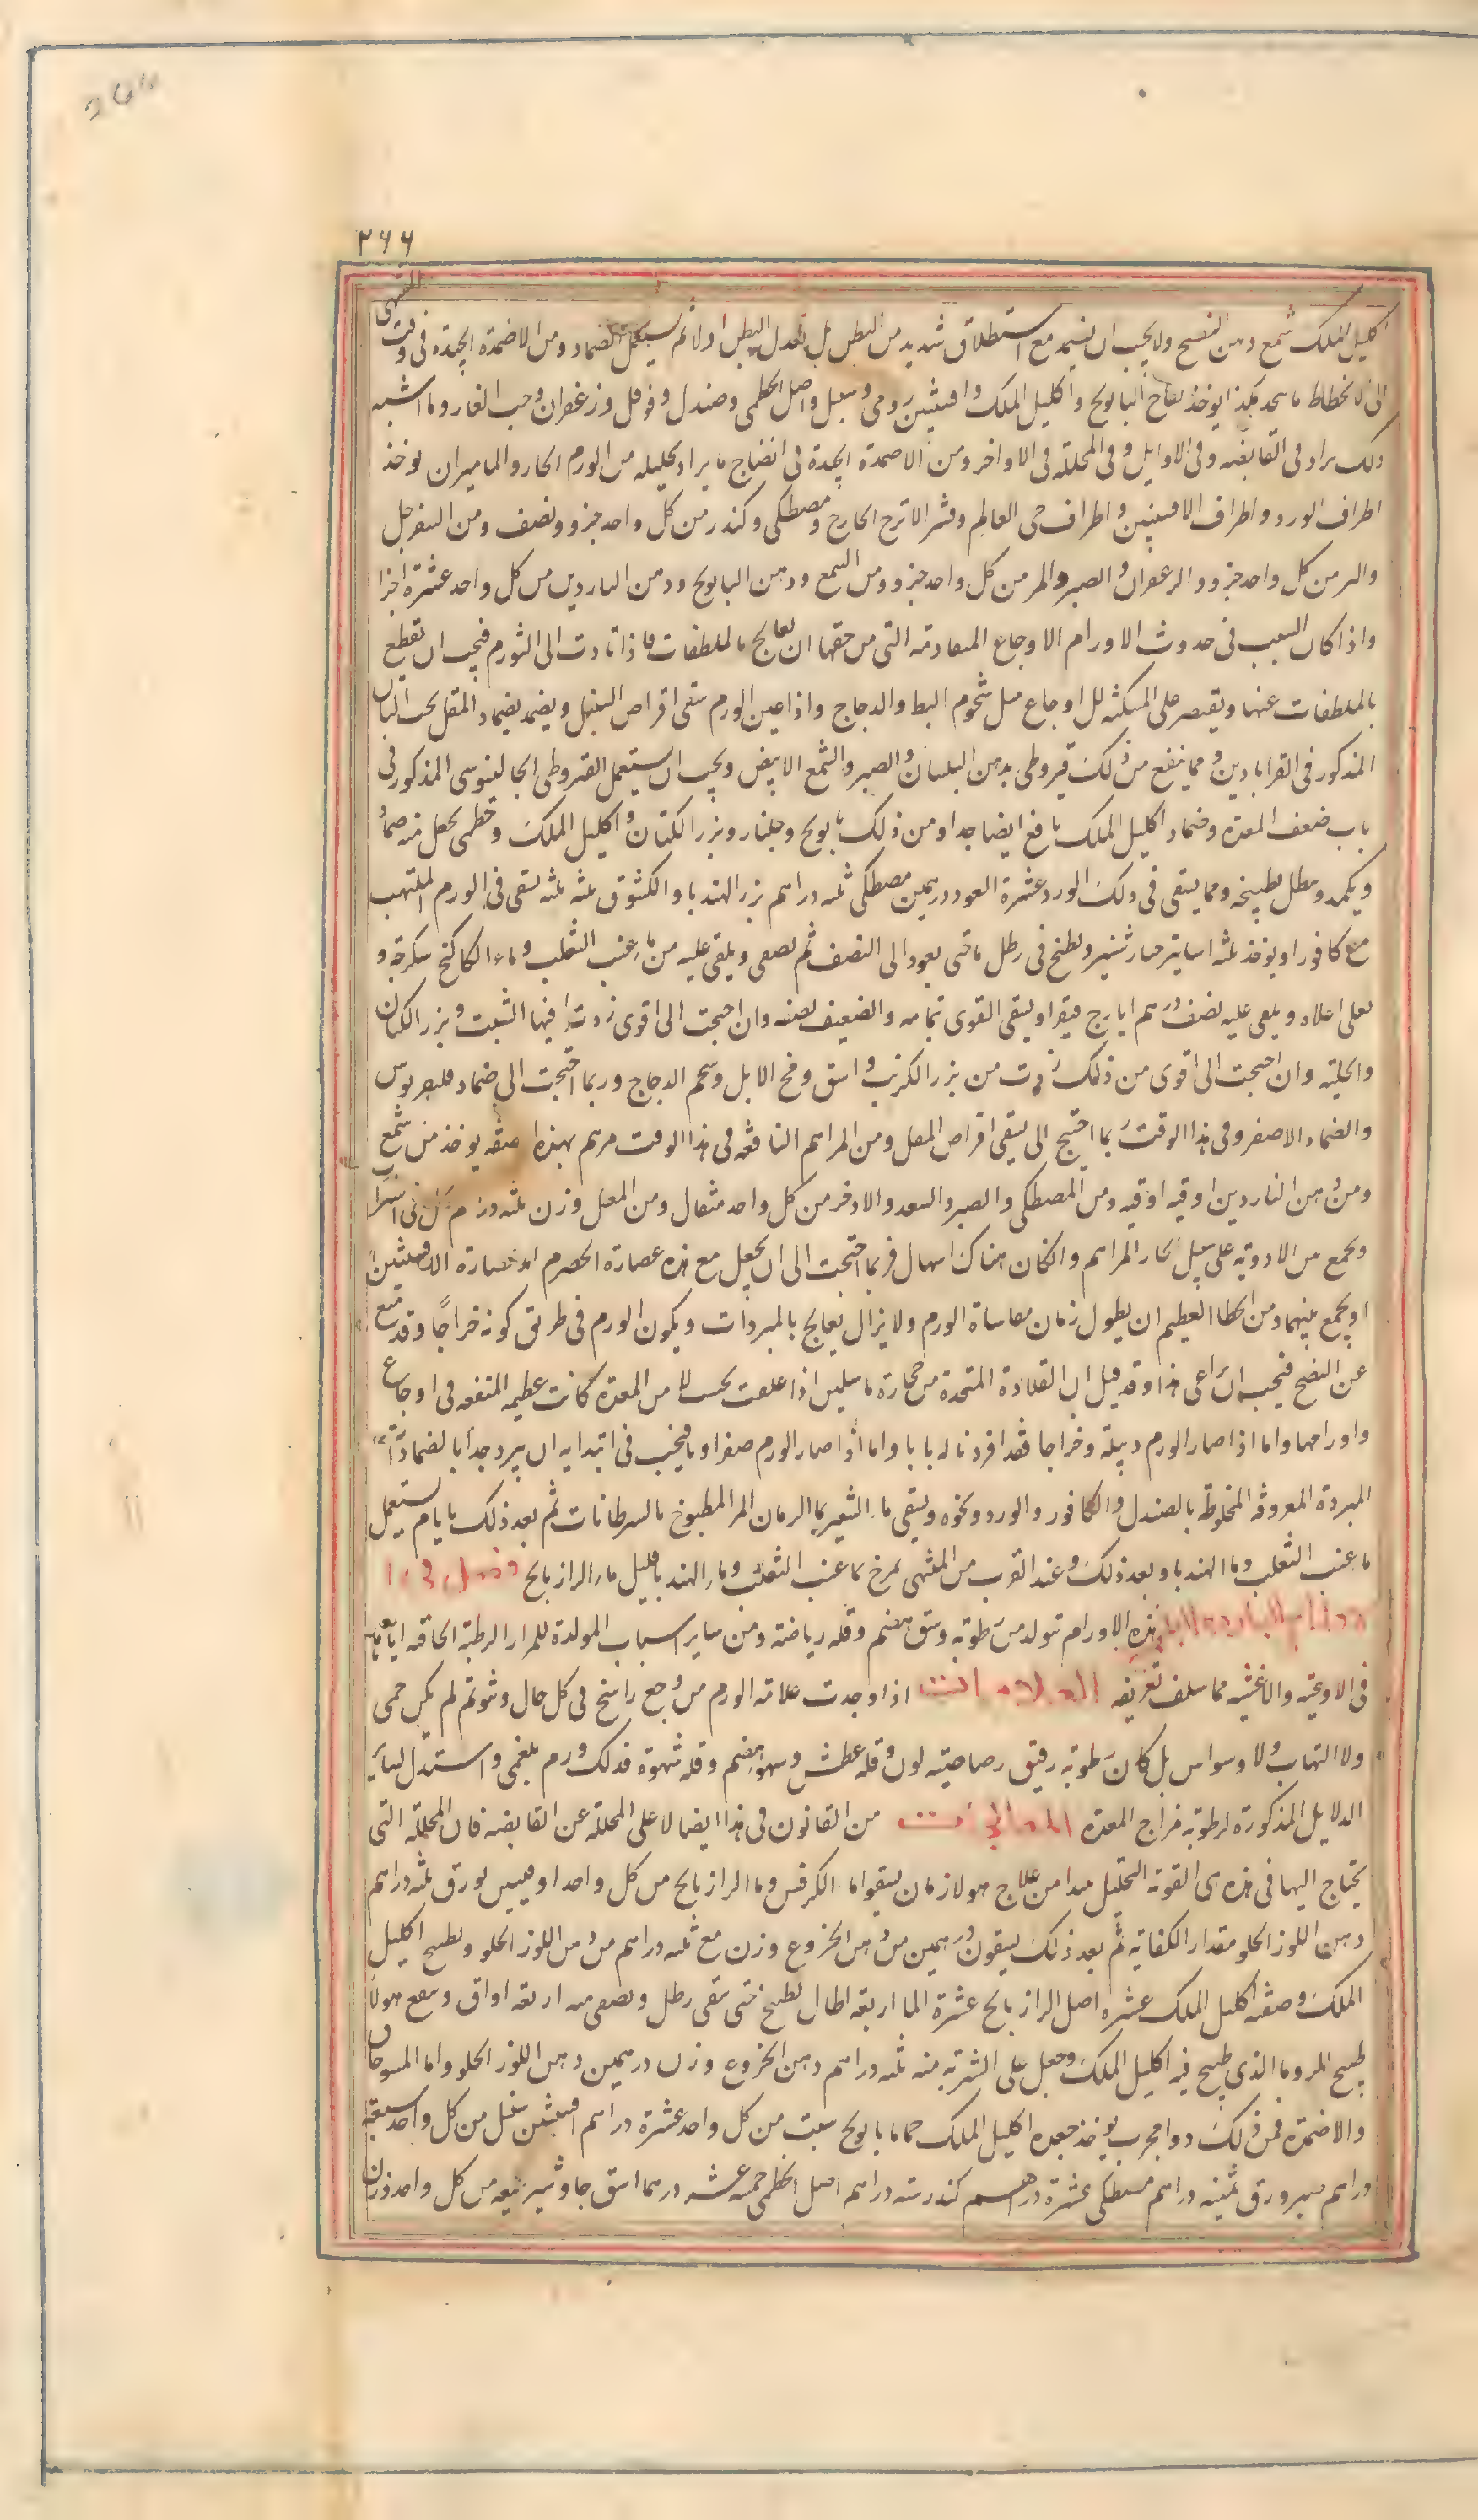 ٢٦٦
اكليل الملك شمع دهن البنفسج ولا يجب ان يضمد مع استطلاق شديد من البطن بل يعدل البطن اولا ثم يستعمل الضماد ومن الاضمدة الجيدة فى وقت المنتهى
الى الانحطاط ما يتخذ هكذا يوخذ البابونج واكليل الملك وافسنتين رومى وسنبل واصل الخطمى وصندل وفوفل وزعفران وحب الغار وما اشبه
ذلك يزاد فى القابضة وفى الاوايل وفى المحللة فى الاواخر ومن الاضمدة الجيدة فى انضاج ما يراد تحليله من الورم الحار والماميران يوخذ
اطراف الورد واطراف الافسنتين واطراف حى العالم وقشر الاترج الخارج ومصطكى وكندر من كل واحد جزو ونصف ومن السفرجل
والبسر من كل واحد جزو والزعفران والصبر والمر من كل واحد جزو ومن الشمع ودهن البابونج ودهن الناردين من كل واحد عشرة اجزا
واذا كان السبب فى حدوث الاورام الاوجاع المتقادمة التى من حقها ان تعالج بالملطفات فاذا تادت الى التورم فيجب ان تقطع
بالملطفات عنها ويقتصر على المسكنه للاوجاع مثل شحوم البط والدجاج واذا عين الورم سقى اقراص السنبل ويضمد بضماد المقل بحب البان
المذكور فى القرابادين ومما ينفع من ذلك قيروطى بدهن البلسان والصبر والشمع الابيض ويجب ان يستعمل القيروطى الجالينوسى المذكور فى
باب ضعف المعدة وضماد اكليل الملك نافع ايضا جدا ومن ذلك بابونج وجلنار وبزر الكتان واكليل الملك وخطمى يجعل منه ضماد
ويكمد ويطل بطبيخه ومما يسقى فى ذلك الورد عشرة العود درهمين مصطكى ثلثه دراهم بزر الهندبا والكشوث ثلثه ثلثه يسقى فى الورم الملتهب
مع كافور او يوخذ ثلثه اساتير خيار شنبر ويطبخ فى رطل ما حتى يعود الى النصف ثم يصفى ويلقى عليه من ماء عنب الثعلب وماء الكاكنج سكرجة و
يغلى اغلاء ويلقى عليه نصف درهم ايارج فيقرا ويسقى القوى تمامه والضعيف نصفه وان احتجت الى اقوى زدت فيها الشبت وبزر الكتان
والحلبة وان احتجت الى اقوى من ذلك زدت من بزر الكرنب واشق ومخ الابل وشحم الدجاج وربما احتجت الى ضماد فيلغريوس
والضماد الاصفر وفى هذا الوقت ربما احتيج الى يسقى اقراص المقل ومن المراهم النافعة فى هذا الوقت مرهم بهذه الصفه يوخذ من شمع
ومن دهن الناردين اوقيه اوقيه ومن المصطكى والصبر والسعد والاذخر من كل واحد مثقال ومن المقل وزن ثلثه درهم
ويجمع من الادوية على سبيل اتخاذ المراهم وان كان هناك اسهال فربما احتجت الى ان يجعل مع هذه عصارة الحصرم او عصارة الافسنتين
او يجمع بينهما ومن الخطا العظيم ان يطول زمان مقاساة الورم ولا يزال يعالج بالمبردات ويكون الورم فى طريق كونه خراجا وقد منع
عن النضج فيجب ان يراعى هذا وقد قيل ان القلادة المتخذة من حجارة اذا علقت بحيث من المعدة كانت عظيمة المنفعه فى اوجاع
واورامها واما اذا صار الورم دبيلة وخراجا فقد افردنا له بابا واما اذا صار الورم صفراويا فيجب فى ابتدايه ان يبرد جدا بالضمادات
المبردة المعروفة المخلوطة بالصندل والكافور والورد ونحوه ويسقى ماء الشعير بماء الرمان المز المطبوخ بالسرطانات ثم بعد ذلك بايام يستعمل
ما عنب الثعلب وما الهندبا وبعد ذلك وعند القرب من المنتهى يمزج بما عنب الثعلب وماء الهندبا قليل ماء الرازيانج فصل فى
الاورام الباردة البلغمية هذه الاورام تتولد من رطوبة وسوء هضم وقله رياضة ومن ساير اسباب المولدة للمرار الرطبة الحاقنه اياها
فى الاوعية والاغشيه مما سلف تعريفه العلامات اذا وجدت علامة الورم من وجع راسخ فى كل حال ونتو ثم لم يكن حمى
ولا التهاب ولا وسواس بل كان رطوبة رقيق رصاصية لون وقله عطش وسوء هضم وقله شهوة فذلك ورم بلغمى واستدل بساير
الدلايل المذكورة لرطوبة مزاج المعدة المعالجات من القانون فى هذا ايضا لا على المحللة عن القابضه فان المحلله التى
يحتاج اليها فى هذه هى القوية التحليل ومن علاج هولا زمان يسقوا ماء الكرفس وماء الرازيانج من كل واحد اوقيتين بورق ثلثه دراهم
دهن اللوز الحلو مقدار الكفاية ثم بعد ذلك يسقون درهمين من دهن الخروع وزن مع ثلثه دراهم من دهن اللوز الحلو وطبيخ اكليل
الملك وصفته اكليل الملك عشره اصل الرازيانج عشرة الما اربعة ارطال يطبخ حتى يبقى رطل ويصفى منه اربعة اواق وينفع هولاء
طبيخ المر وما الذى طبخ فيه اكليل الملك وجعل على الشربة منه ثلثه دراهم دهن الخروع وزن درهمين دهن اللوز الحلو واما المسوحات
والاضمدة فمن ذلك دوا مجرب يوخذ جعده اكليل الملك حماما بابونج شبت من كل واحد عشرة دراهم افسنتين سنبل من كل واحد سبعة
دراهم صبر ورق ثمنيه دراهم مصطكى عشرة دراهم كندر سته دراهم اصل الخطمى خمسه عشر درهما اشق جاوشير ميعه من كل واحد وزن